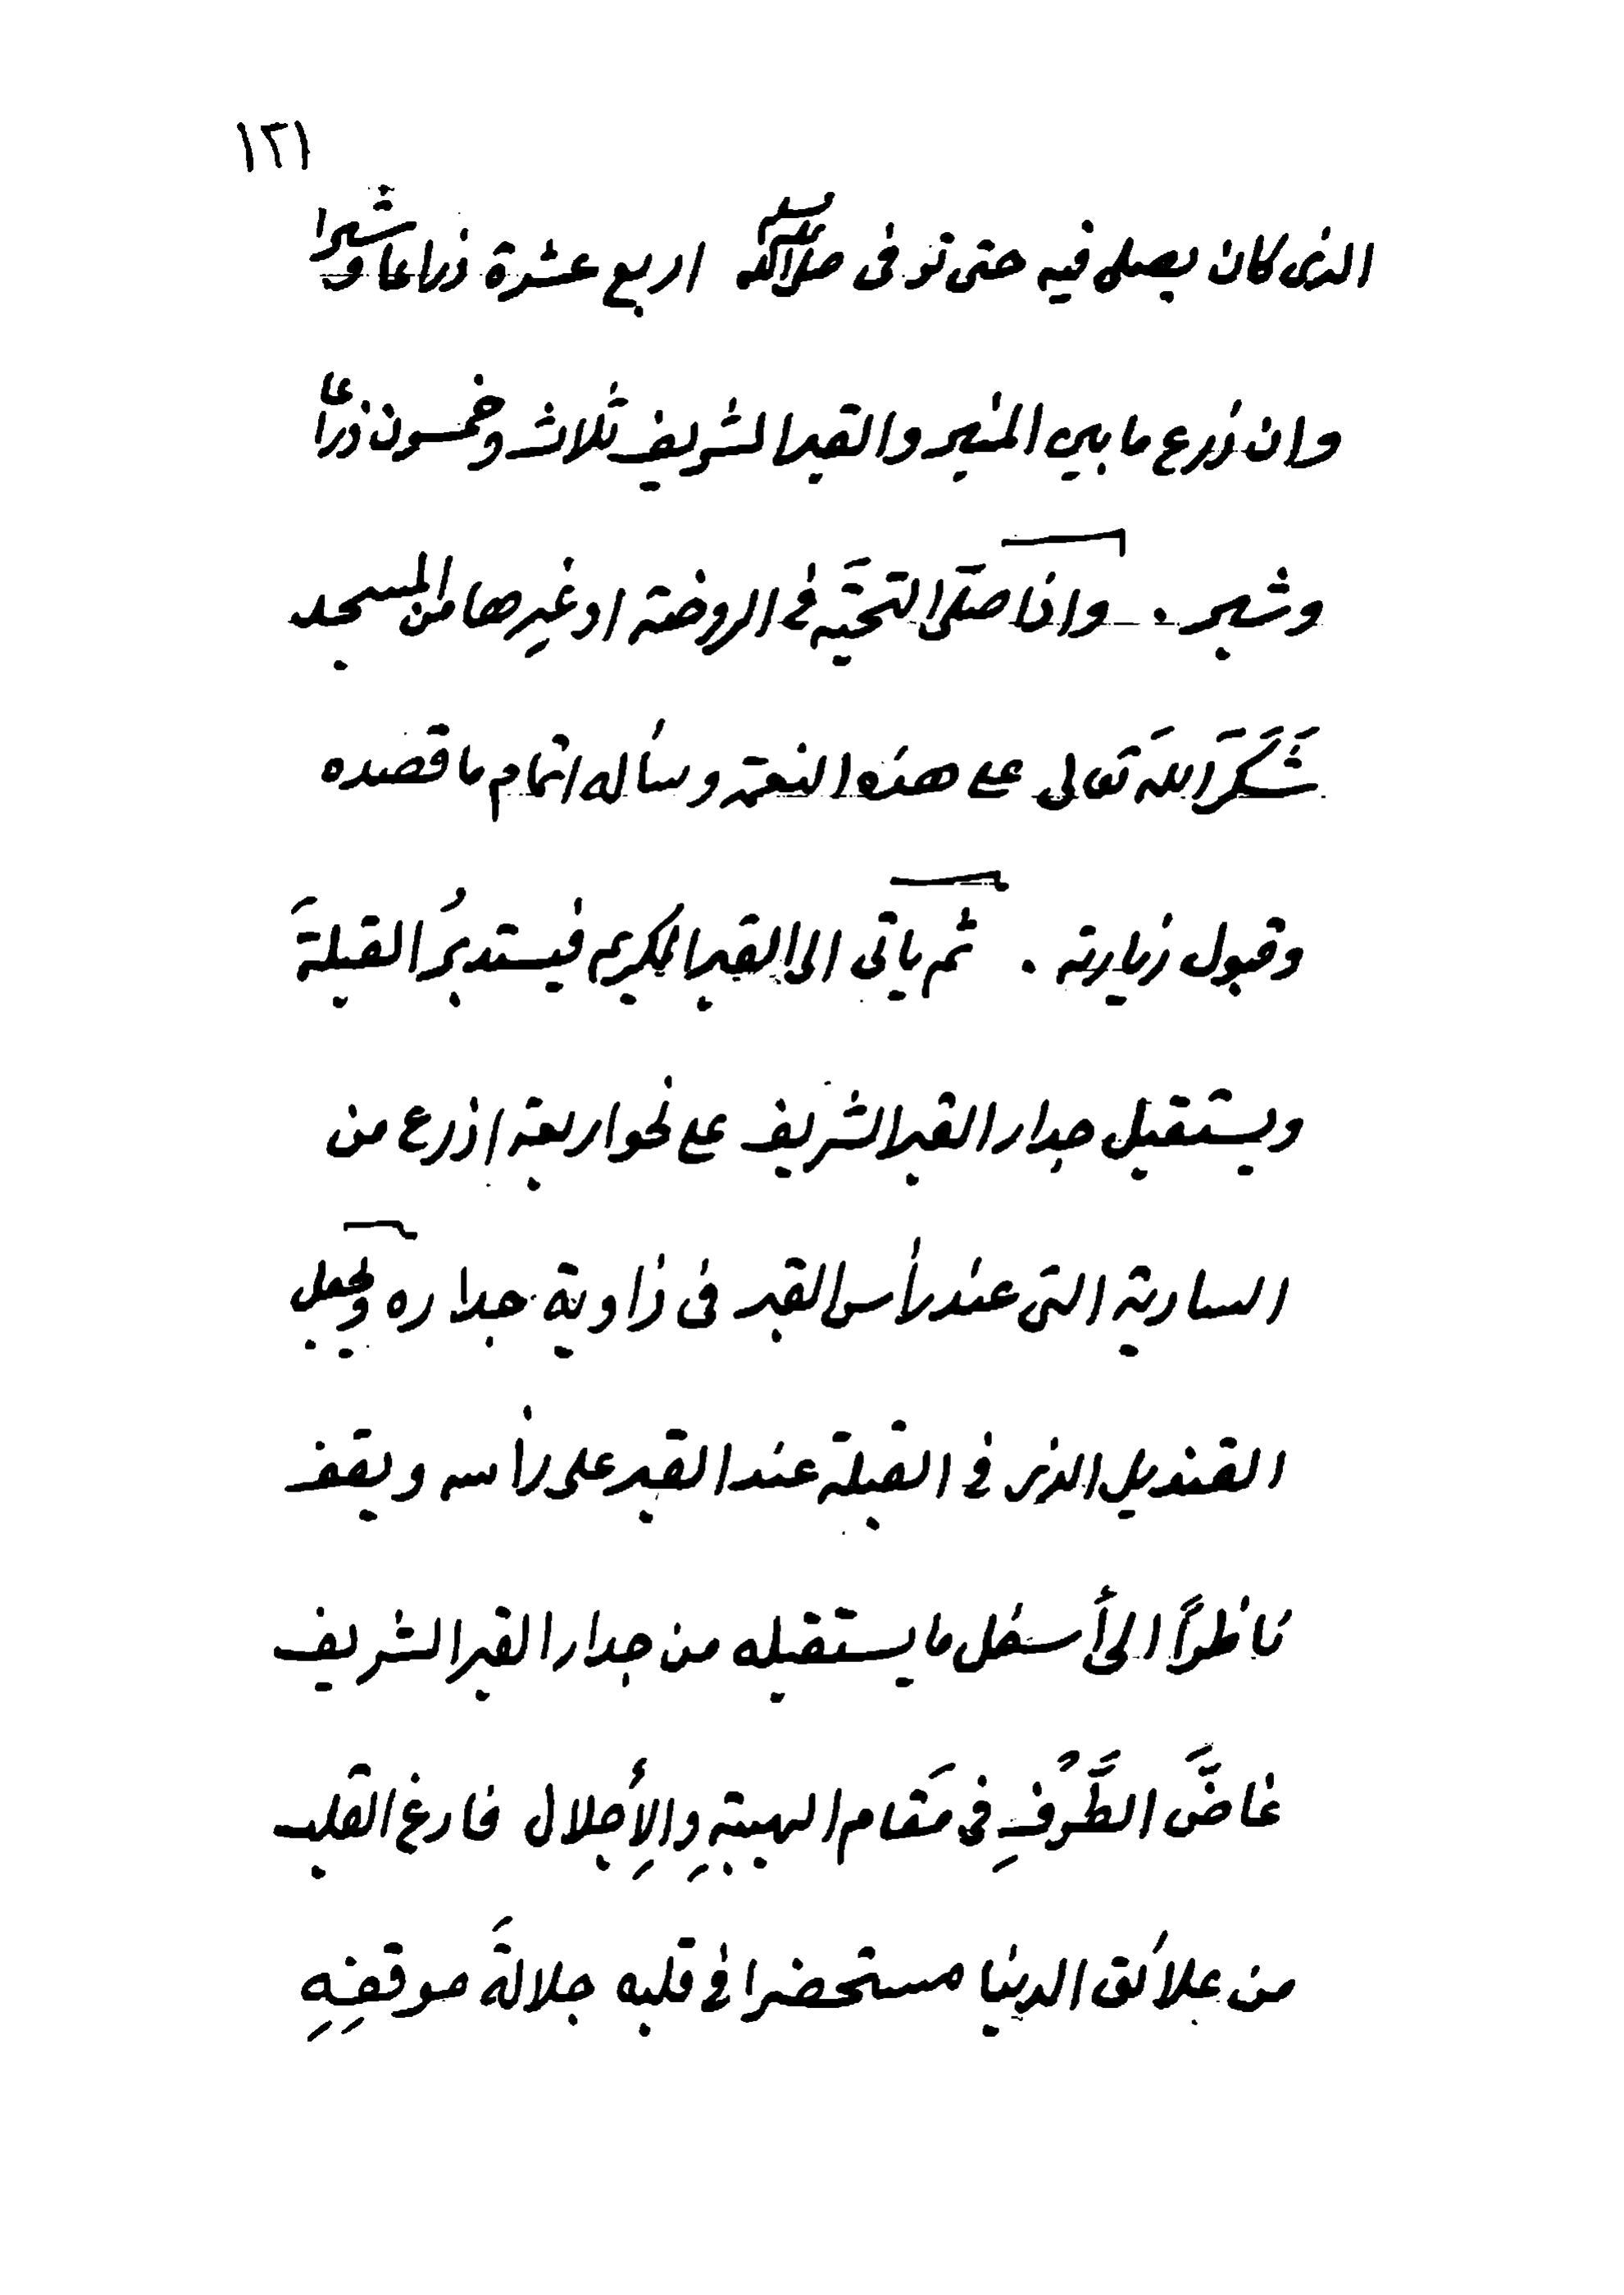 ١٢١
الذى كان يصلى فيه حتى توفى صلى الله عليه وسلم اربع عشرة ذراعا وشبرا
وان ذرع ما بين المنبر والقبر الشريف ثلاث وخمسون ذراعًا
وشبر . واذا صلّى التحيّة في الروضة او غيرها من المسجد
شَكَرَ اللهَ تعالى على هذه النعمة وسأله اتمام ما قصده
وقبول زيارته . ثم ياتى الى القبر الكريم فيستدبرُ القبلةَ
ويستقبل جدار القبر الشريف على نحو اربعة اذرع من
السارية التى عند رأس القبر فى زاوية جداره ويجعل
القنديل الذى في القبلة عند القبر على رأسه ويقف
ناظراً الى أسفل ما يستقبله من جدار القبر الشريف
غاضَّ الطَّرْفِ فى مَقام الهيبةِ والإِجلال فارغ القلب
من علائق الدنيا مستحضرا في قلبه جلالةَ موقفِهِ